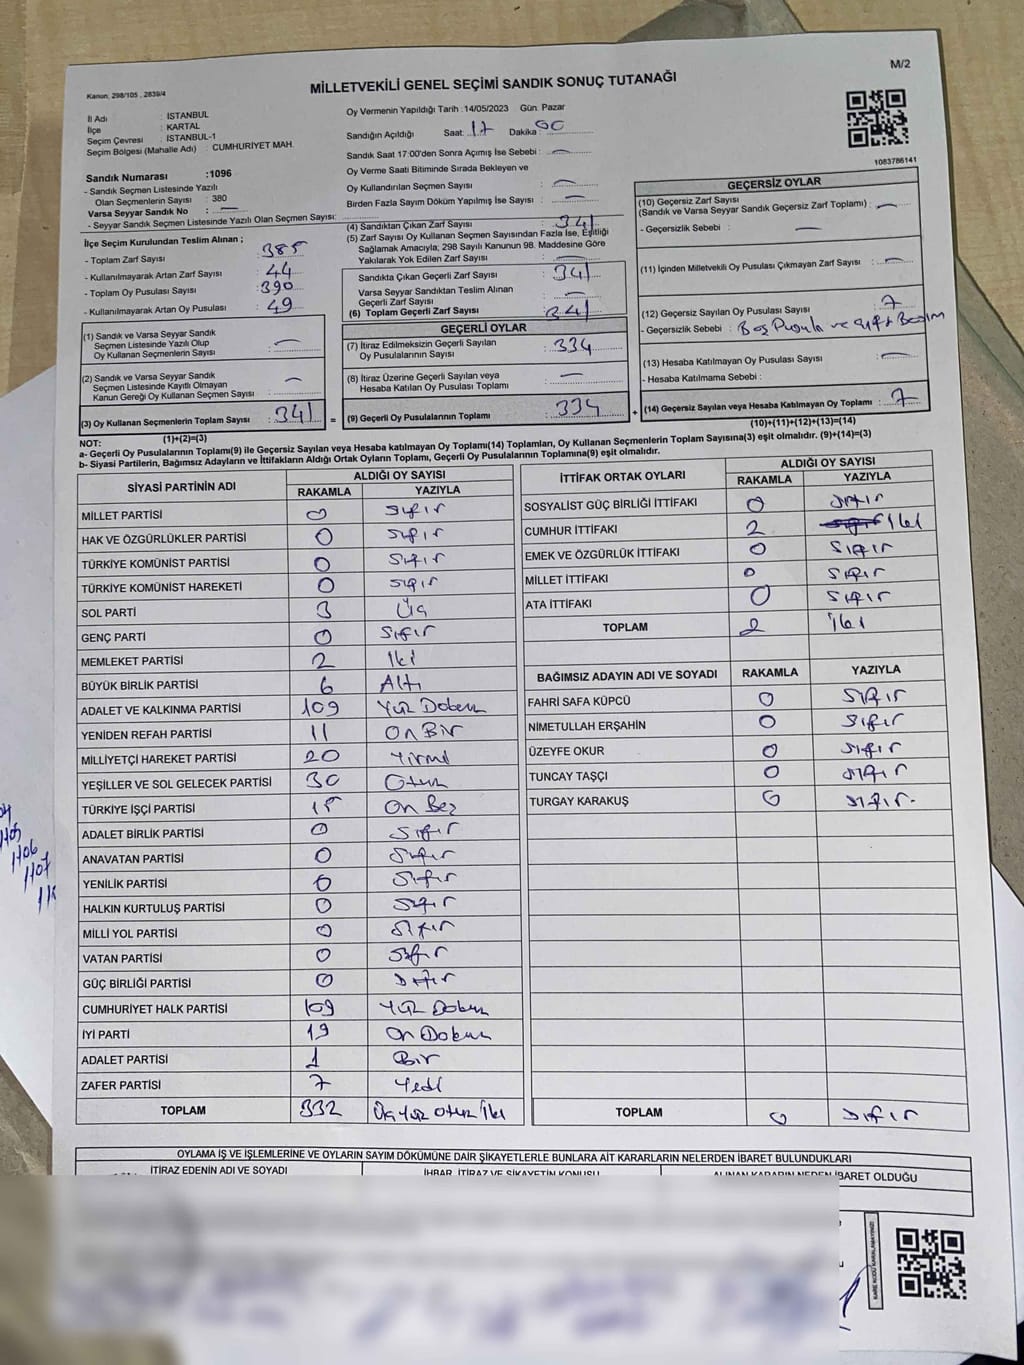 M/2
Kanun: 298/105 , 2839/4
MİLLETVEKİLİ GENEL SEÇİMİ SANDIK SONUÇ TUTANAĞI
İl Adı : İSTANBUL
İlçe : KARTAL
Seçim Çevresi : İSTANBUL-1
Seçim Bölgesi (Mahalle Adı) : CUMHURİYET MAH.
Sandık Numarası :1096
- Sandık Seçmen Listesinde Yazılı
Olan Seçmenlerin Sayısı : 380
Varsa Seyyar Sandık No : —
- Seyyar Sandık Seçmen Listesinde Yazılı Olan Seçmen Sayısı:
İlçe Seçim Kurulundan Teslim Alınan ;
- Toplam Zarf Sayısı : 385
- Kullanılmayarak Artan Zarf Sayısı : 44
- Toplam Oy Pusulası Sayısı : 390
- Kullanılmayarak Artan Oy Pusulası : 49
(1) Sandık ve Varsa Seyyar Sandık
Seçmen Listesinde Yazılı Olup
Oy Kullanan Seçmenlerin Sayısı : —
(2) Sandık ve Varsa Seyyar Sandık
Seçmen Listesinde Kayıtlı Olmayan
Kanun Gereği Oy Kullanan Seçmen Sayısı : —
(3) Oy Kullanan Seçmenlerin Toplam Sayısı : 341
(1)+(2)=(3)
Oy Vermenin Yapıldığı Tarih :14/05/2023 Gün: Pazar
Sandığın Açıldığı Saat: 17 Dakika: 00
Sandık Saat 17:00'den Sonra Açımış İse Sebebi : —
Oy Verme Saati Bitiminde Sırada Bekleyen ve
Oy Kullandırılan Seçmen Sayısı : —
Birden Fazla Sayım Döküm Yapılmış İse Sayısı : —
(4) Sandıktan Çıkan Zarf Sayısı : 341
(5) Zarf Sayısı Oy Kullanan Seçmen Sayısından Fazla İse, Eşitliği
Sağlamak Amacıyla; 298 Sayılı Kanunun 98. Maddesine Göre
Yakılarak Yok Edilen Zarf Sayısı : —
Sandıkta Çıkan Geçerli Zarf Sayısı : 341
Varsa Seyyar Sandıktan Teslim Alınan
Geçerli Zarf Sayısı : —
(6) Toplam Geçerli Zarf Sayısı : 341
GEÇERLİ OYLAR
(7) İtiraz Edilmeksizin Geçerli Sayılan
Oy Pusulalarının Sayısı : 334
(8) İtiraz Üzerine Geçerli Sayılan veya
Hesaba Katılan Oy Pusulası Toplamı : —
= (9) Geçerli Oy Pusulalarının Toplamı : 334 +
1083786141
GEÇERSİZ OYLAR
(10) Geçersiz Zarf Sayısı
(Sandık ve Varsa Seyyar Sandık Geçersiz Zarf Toplamı) : —
- Geçersizlik Sebebi : —
(11) İçinden Milletvekili Oy Pusulası Çıkmayan Zarf Sayısı : —
(12) Geçersiz Sayılan Oy Pusulası Sayısı : 7
- Geçersizlik Sebebi : Boş Pusula ve çift Basım
(13) Hesaba Katılmayan Oy Pusulası Sayısı : —
- Hesaba Katılmama Sebebi :
(14) Geçersiz Sayılan veya Hesaba Katılmayan Oy Toplamı : 7
(10)+(11)+(12)+(13)=(14)
NOT:
a- Geçerli Oy Pusulalarının Toplamı(9) ile Geçersiz Sayılan veya Hesaba katılmayan Oy Toplamı(14) Toplamları, Oy Kullanan Seçmenlerin Toplam Sayısına(3) eşit olmalıdır. (9)+(14)=(3)
b- Siyasi Partilerin, Bağımsız Adayların ve İttifakların Aldığı Ortak Oyların Toplamı, Geçerli Oy Pusulalarının Toplamına(9) eşit olmalıdır.
SİYASİ PARTİNİN ADI ALDIĞI OY SAYISI
RAKAMLA YAZIYLA
MİLLET PARTİSİ 0 Sıfır
HAK VE ÖZGÜRLÜKLER PARTİSİ 0 Sıfır
TÜRKİYE KOMÜNİST PARTİSİ 0 Sıfır
TÜRKİYE KOMÜNİST HAREKETİ 0 Sıfır
SOL PARTİ 3 Üç
GENÇ PARTİ 0 Sıfır
MEMLEKET PARTİSİ 2 İki
BÜYÜK BİRLİK PARTİSİ 6 Altı
ADALET VE KALKINMA PARTİSİ 109 Yüz Dokuz
YENİDEN REFAH PARTİSİ 11 On Bir
MİLLİYETÇİ HAREKET PARTİSİ 20 Yirmi
YEŞİLLER VE SOL GELECEK PARTİSİ 30 Otuz
TÜRKİYE İŞÇİ PARTİSİ 15 On Beş
ADALET BİRLİK PARTİSİ 0 Sıfır
ANAVATAN PARTİSİ 0 Sıfır
YENİLİK PARTİSİ 0 Sıfır
HALKIN KURTULUŞ PARTİSİ 0 Sıfır
MİLLİ YOL PARTİSİ 0 Sıfır
VATAN PARTİSİ 0 Sıfır
GÜÇ BİRLİĞİ PARTİSİ 0 Sıfır
CUMHURİYET HALK PARTİSİ 109 Yüz Dokuz
İYİ PARTİ 19 On Dokuz
ADALET PARTİSİ 1 Bir
ZAFER PARTİSİ 7 Yedi
TOPLAM 332 Üç Yüz Otuz İki
İTTİFAK ORTAK OYLARI ALDIĞI OY SAYISI
RAKAMLA YAZIYLA
SOSYALİST GÜÇ BİRLİĞİ İTTİFAKI 0 Sıfır
CUMHUR İTTİFAKI 2 İki
EMEK VE ÖZGÜRLÜK İTTİFAKI 0 Sıfır
MİLLET İTTİFAKI 0 Sıfır
ATA İTTİFAKI 0 Sıfır
TOPLAM 2 İki
BAĞIMSIZ ADAYIN ADI VE SOYADI RAKAMLA YAZIYLA
FAHRİ SAFA KÜPCÜ 0 Sıfır
NİMETULLAH ERŞAHİN 0 Sıfır
ÜZEYFE OKUR 0 Sıfır
TUNCAY TAŞÇI 0 Sıfır
TURGAY KARAKUŞ 0 Sıfır
TOPLAM 0 Sıfır
OYLAMA İŞ VE İŞLEMLERİNE VE OYLARIN SAYIM DÖKÜMÜNE DAİR ŞİKAYETLERLE BUNLARA AİT KARARLARIN NELERDEN İBARET BULUNDUKLARI
İTİRAZ EDENİN ADI VE SOYADI İHBAR, İTİRAZ VE ŞİKAYETİN KONUSU ALINAN KARARIN NEDEN İBARET OLDUĞU
KARE KODU KARALAMAYINIZ!
1105
1106
1107